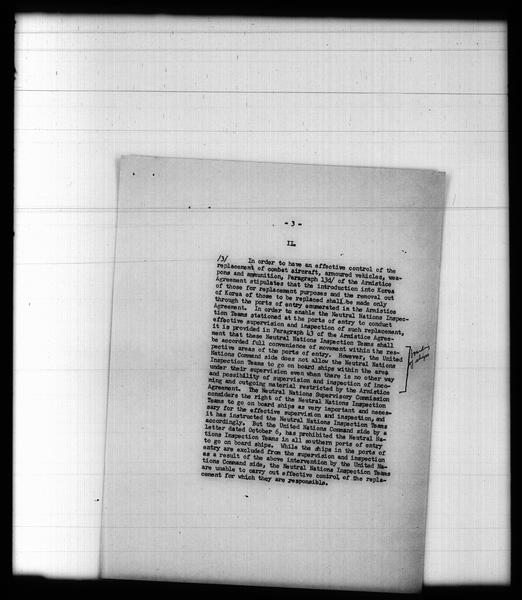 - 3 -
II.
/3/ In order to have an effective control of the
replacement of combat aircraft, armoured vehicles, wea-
pons and ammunition, Paragraph 13d/ of the Armistice
Agreement stipulates that the introduction into Korea
of those for replacement purposes and the removal out
of Korea of those to be replaced shall be made only
through the ports of entry enumerated in the Armistice
Agreement. In order to enable the Neutral Nations Inspec-
tion Teams stationed at the ports of entry to conduct
effective supervision and inspection of such replacement,
it is provided in Paragraph 43 of the Armistice Agree-
ment that these Neutral Nations Inspection Teams shall
be accorded full convenience of movement within the res-
pective areas of the ports of entry. However, the United
Nations Command side does not allow the Neutral Nations
Inspection Teams to go on board ships within the area
under their supervision even when there is no other way
and possibility of supervision and inspection of inco-
ming and outgoing material restricted by the Armistice
Agreement. The Neutral Nations Supervisory Commission
considers the right of the Neutral Nations Inspection
Teams to go on board ships as very important and neces-
sary for the effective supervision and inspection, and
it has instructed the Neutral Nations Inspection Teams
accordingly. But the United Nations Command side by a
letter dated October 6, has prohibited the Neutral Na-
tions Inspection Teams in all southern ports of entry
to go on board ships. While the ships in the ports of
entry are excluded from the supervision and inspection
as a result of the above intervention by the United Na-
tions Command side, the Neutral Nations Inspection Teams
are unable to carry out effective control of the repla-
cement for which they are responsible.